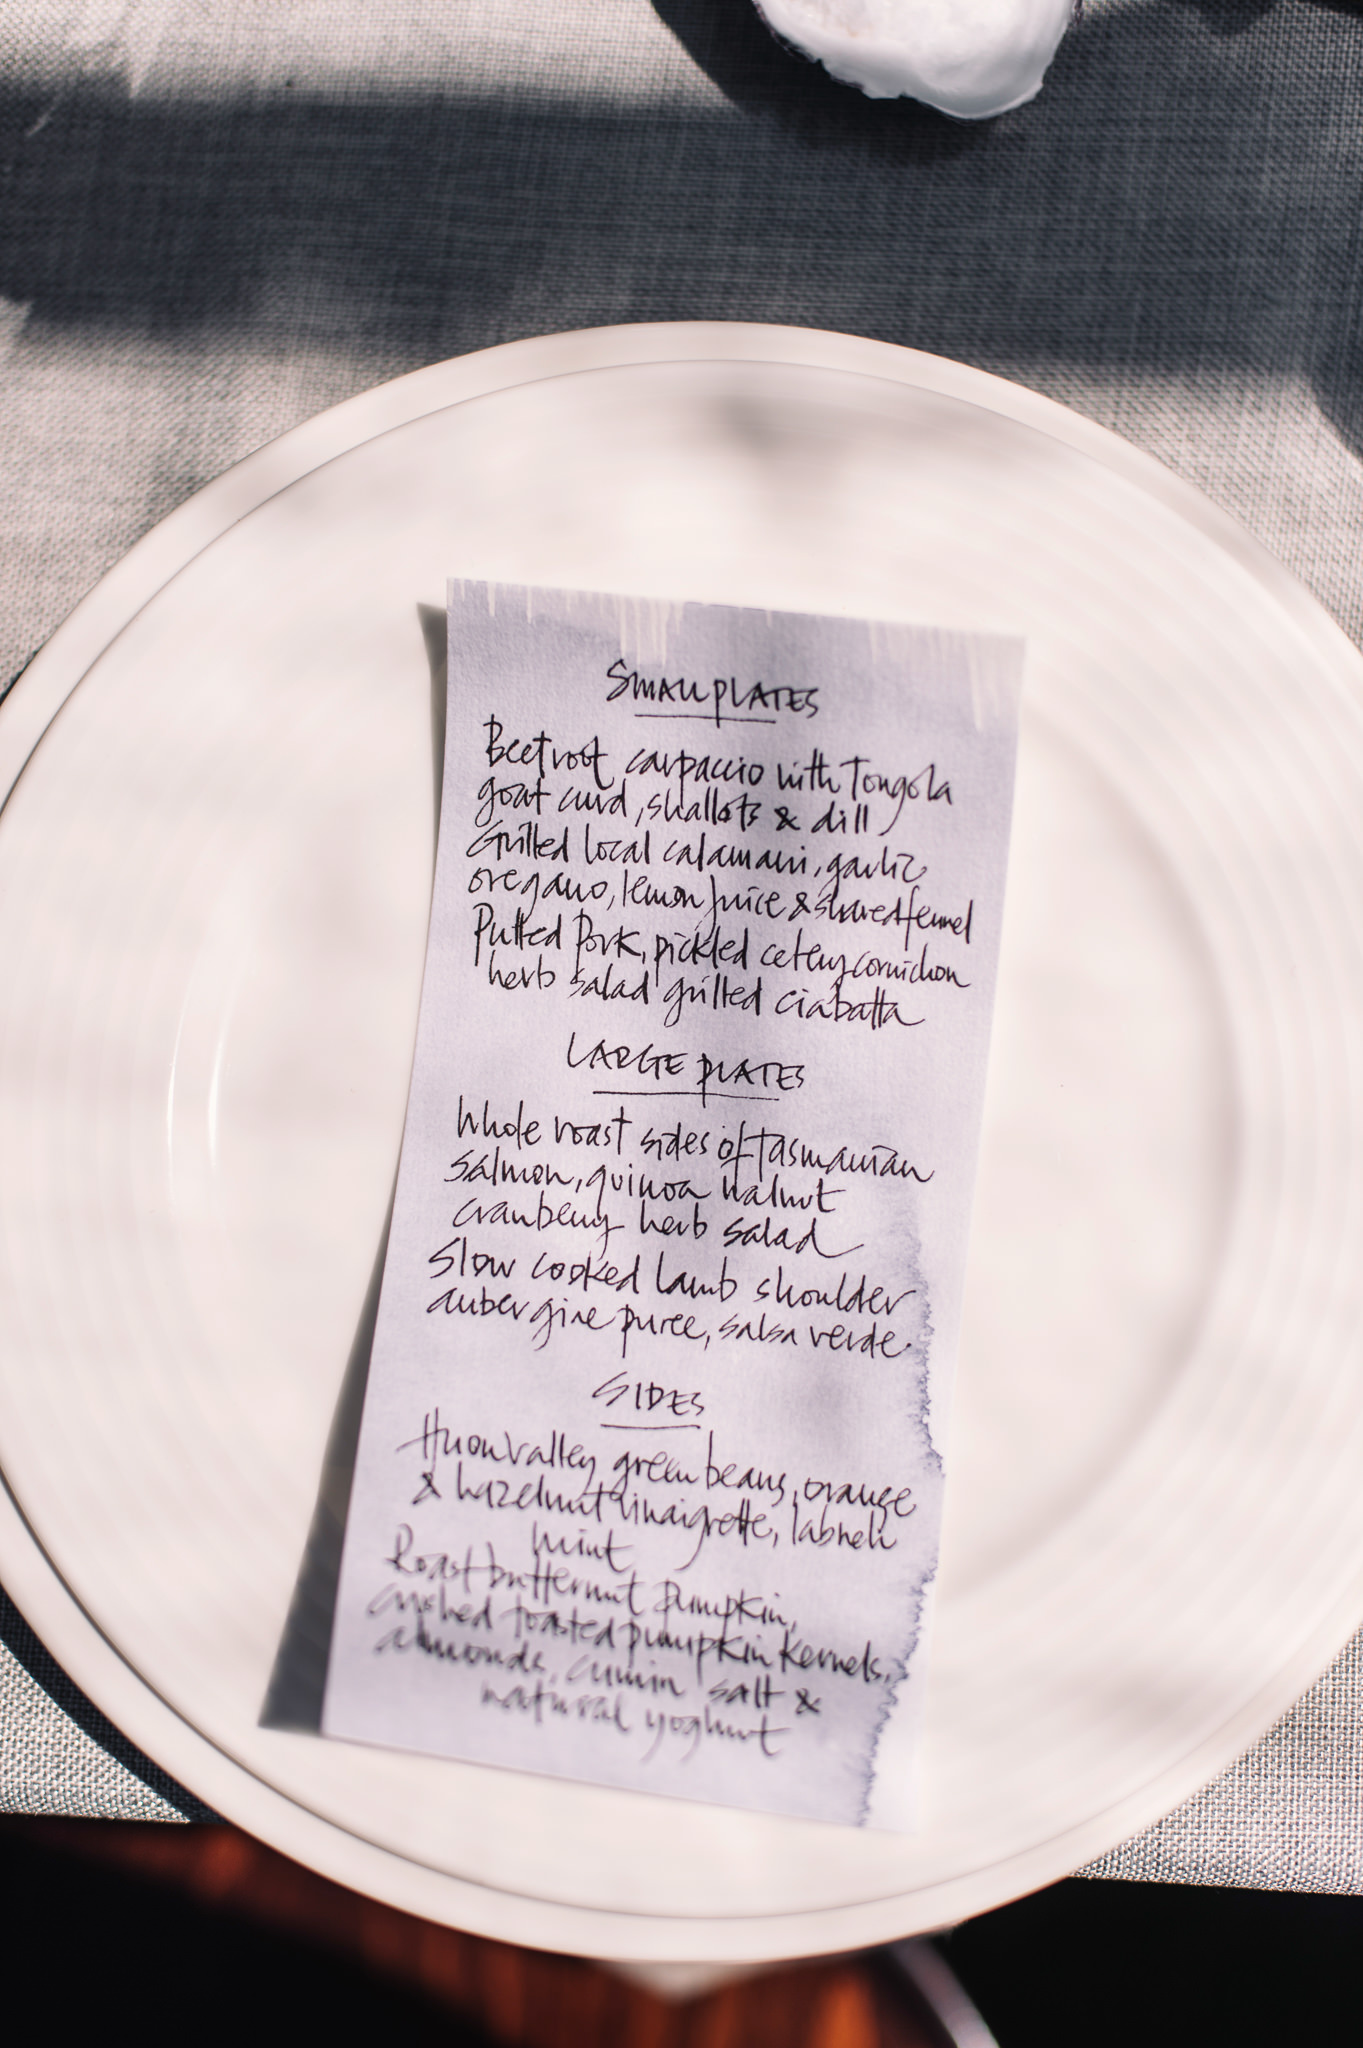 SMALL PLATES
Beetroot carpaccio with Tongola
goat curd, shallots & dill
Grilled local calamari, garlic
oregano, lemon juice & shaved fennel
Pulled Pork, pickled celery cornichon
herb salad grilled ciabatta
LARGE PLATES
Whole roast sides of Tasmanian
salmon, quinoa walnut
cranberry herb salad
Slow cooked lamb shoulder
aubergine puree, salsa verde.
SIDES
Huon valley green beans, orange
& hazelnut vinaigrette, labneh
mint
Roast butternut pumpkin,
crushed toasted pumpkin kernels,
almonds, cumin salt &
natural yoghurt